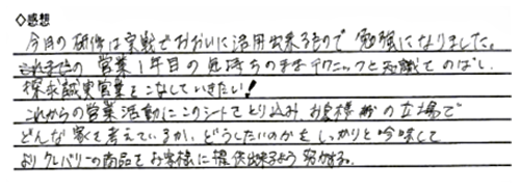 ◇感想
今日の研修は実戦でおおいに活用出来るもので勉強になりました。
これまでの営業1年目の気持ちのままテクニックと知識をのばし、
探求誠実営業をこなしていきたい！
これからの営業活動にこのシートをとり込み、お客様の立場で
どんな家を考えているか、どうしたいのかをしっかりと吟味して
よりクレバリーの商品をお客様に提供出来るよう努力する。